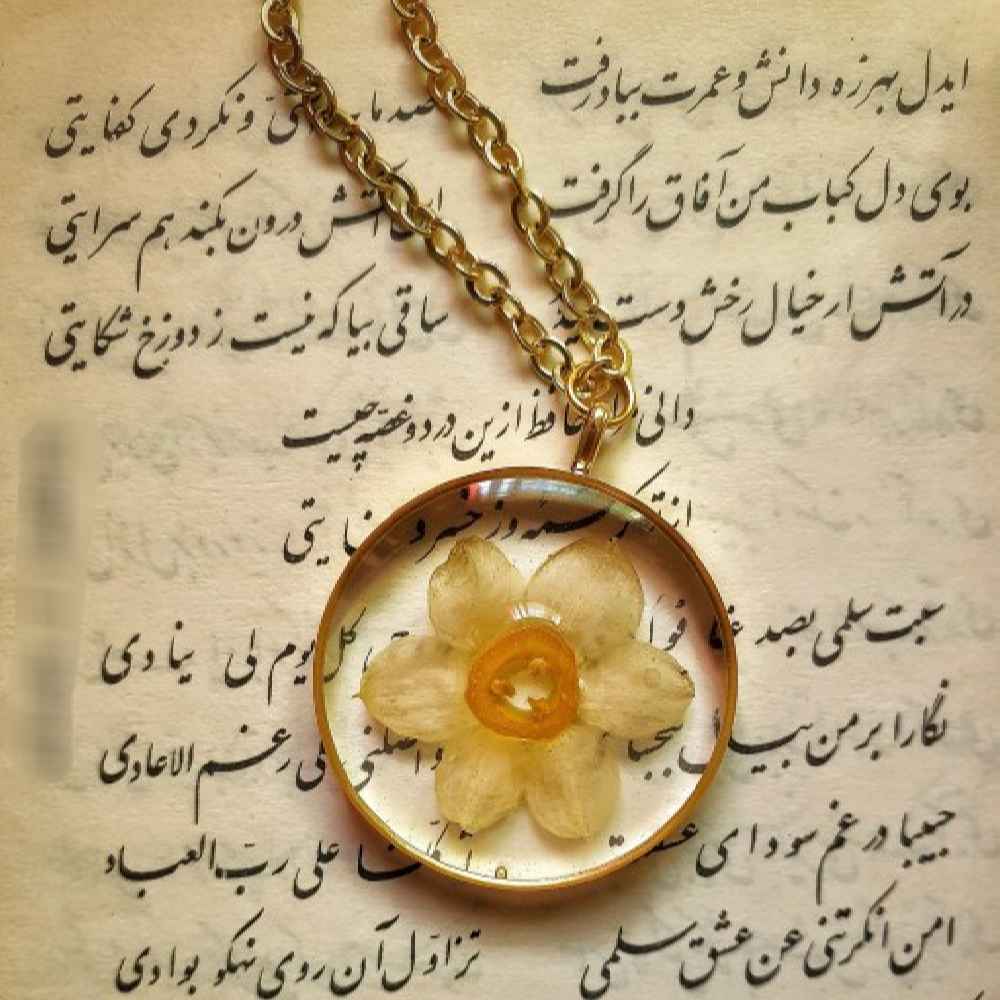 ایدل بهرزه دانش و عمرت ببادرفت صد ما و نکردی کفایتی
بوی دل کباب من آفاق را گرفت این آتش درون بکند هم سرایتی
در آتش ار خیال رخش دست ساقی بیا که نیست ز دوزخ شکایتی
دانی حافظ ازین درد و غصه چیست
از تو کرشمه وز خسرو عنایتی
سبت سلمی بصد کل یوم لی ینادی
نگارا بر من بیدل ببخشا و اصلنی علی رغم الاعادی
حبیبا در غم سودای علی رب العباد
امن انکرتنی عن عشق سلمی تزاول آن روی نهکو بوادی